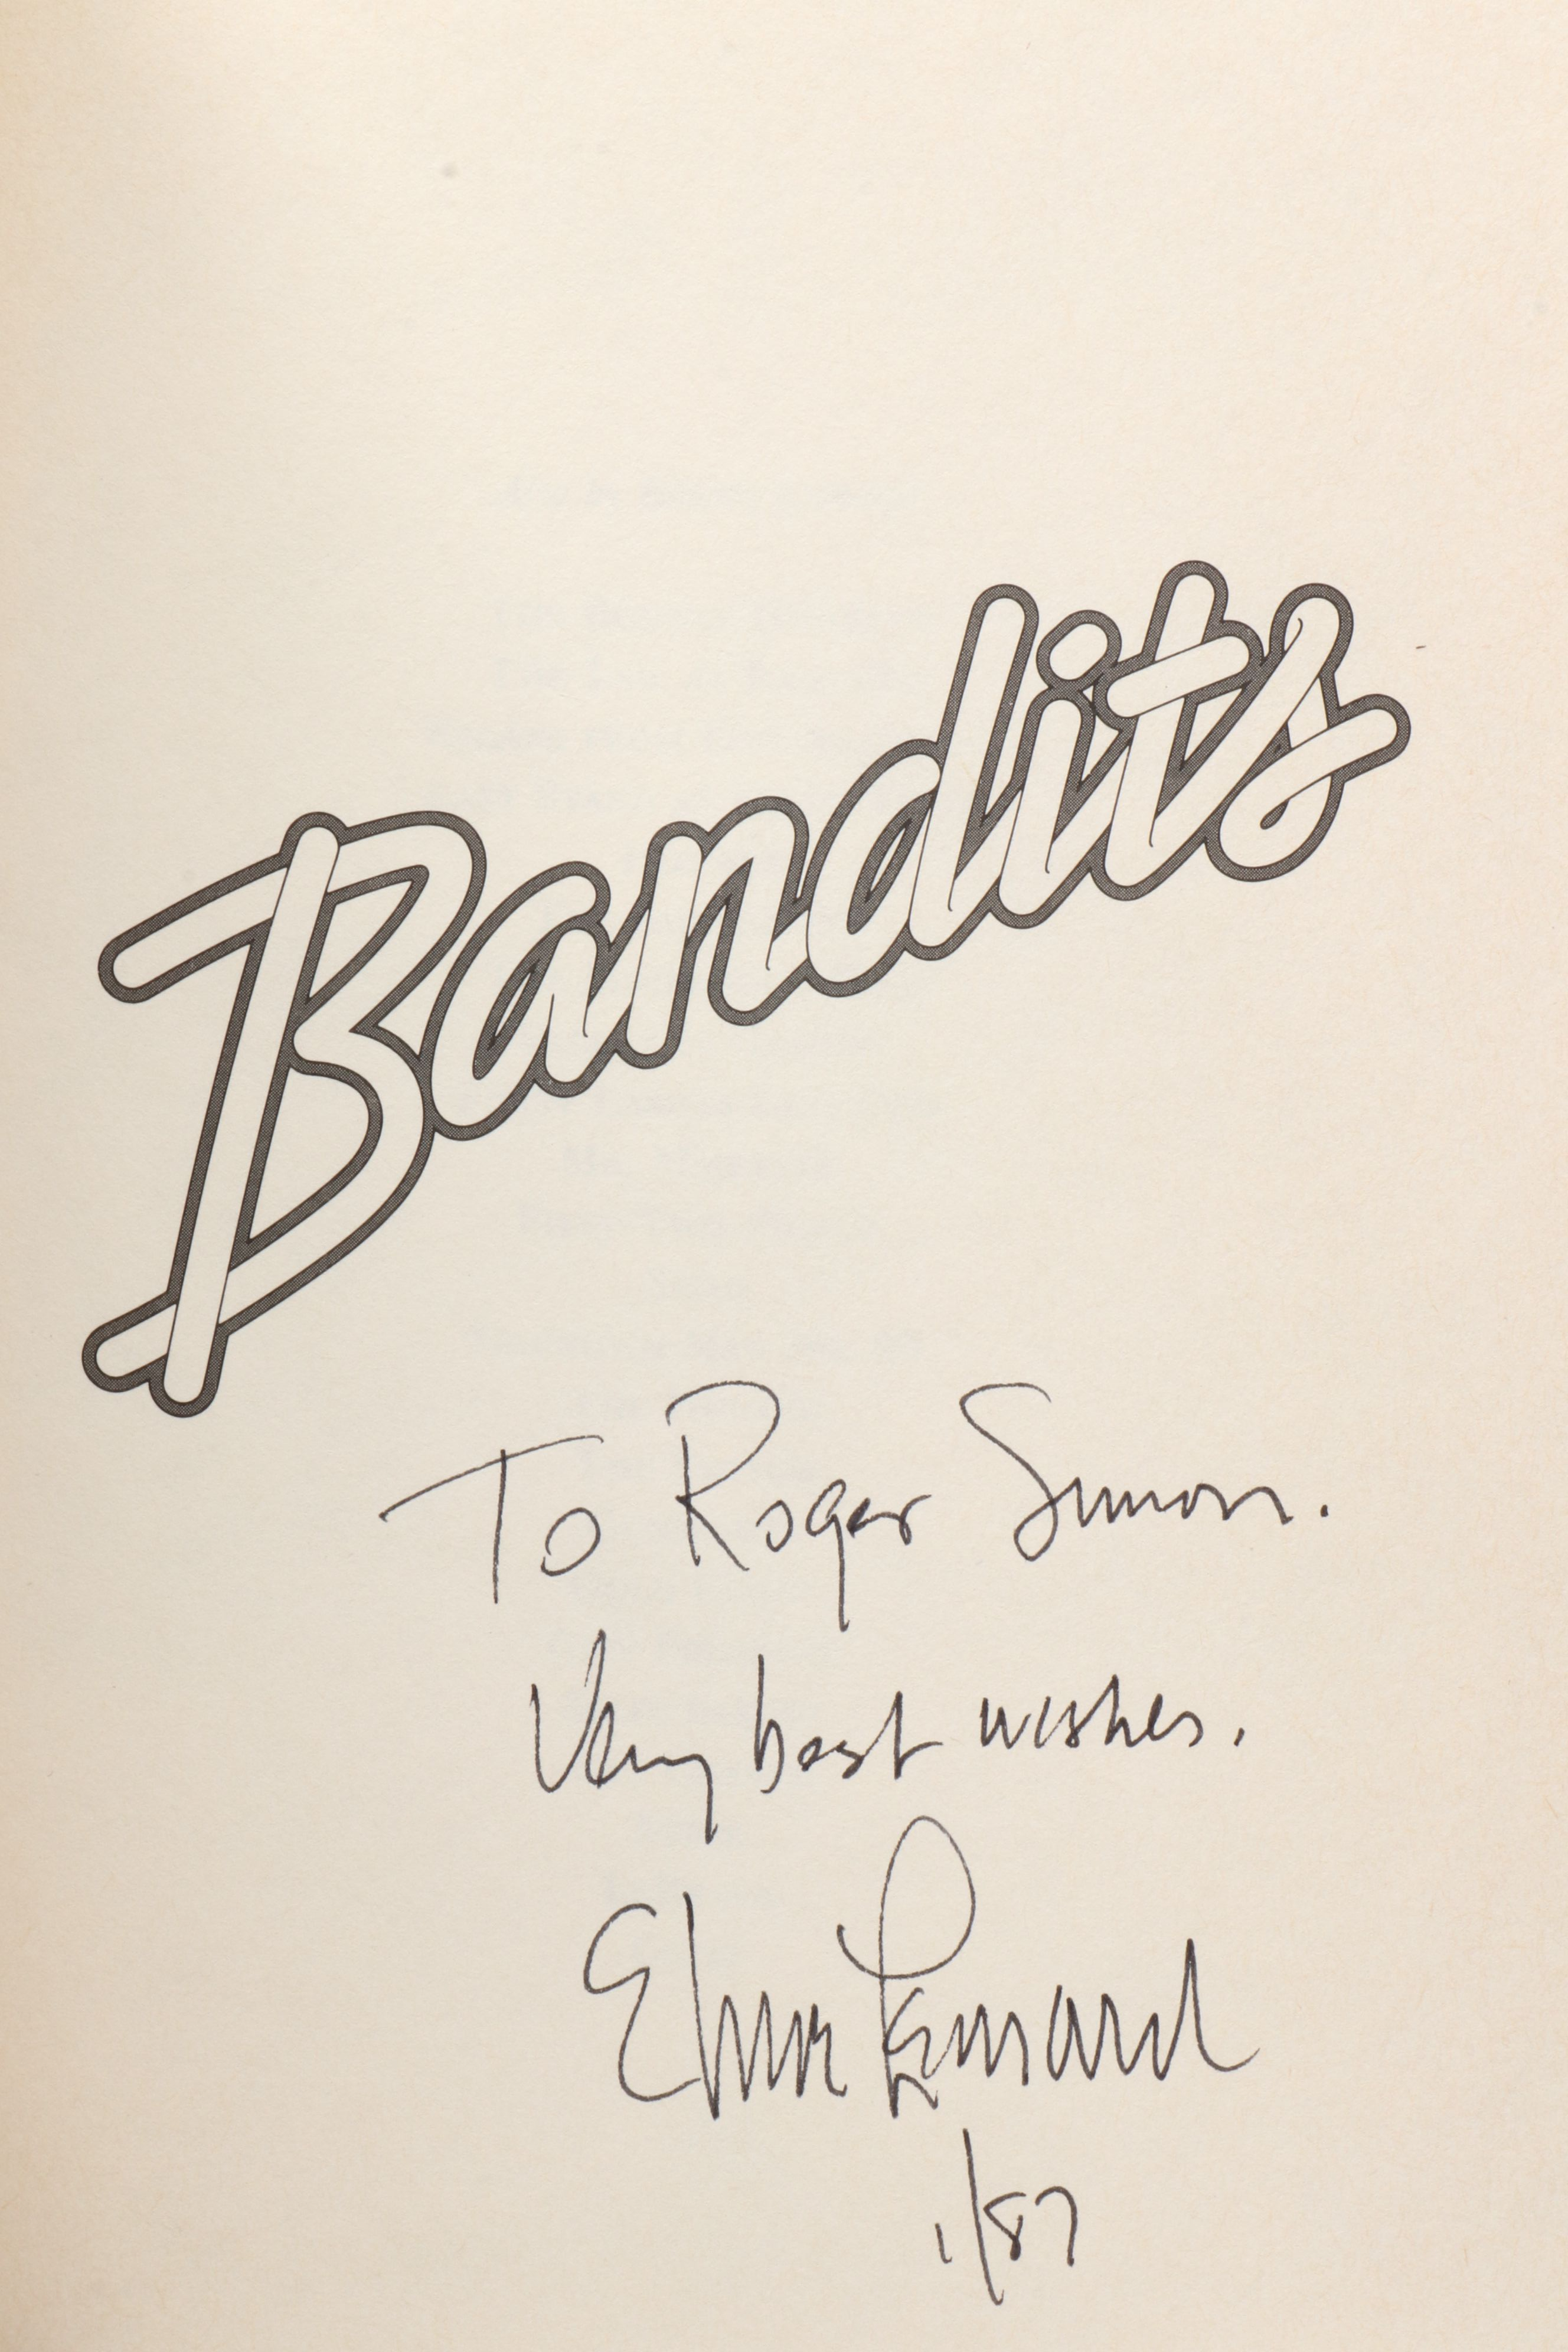 Bandits
To Roger Simon.
Very best wishes.
Elmore Leonard
1/87